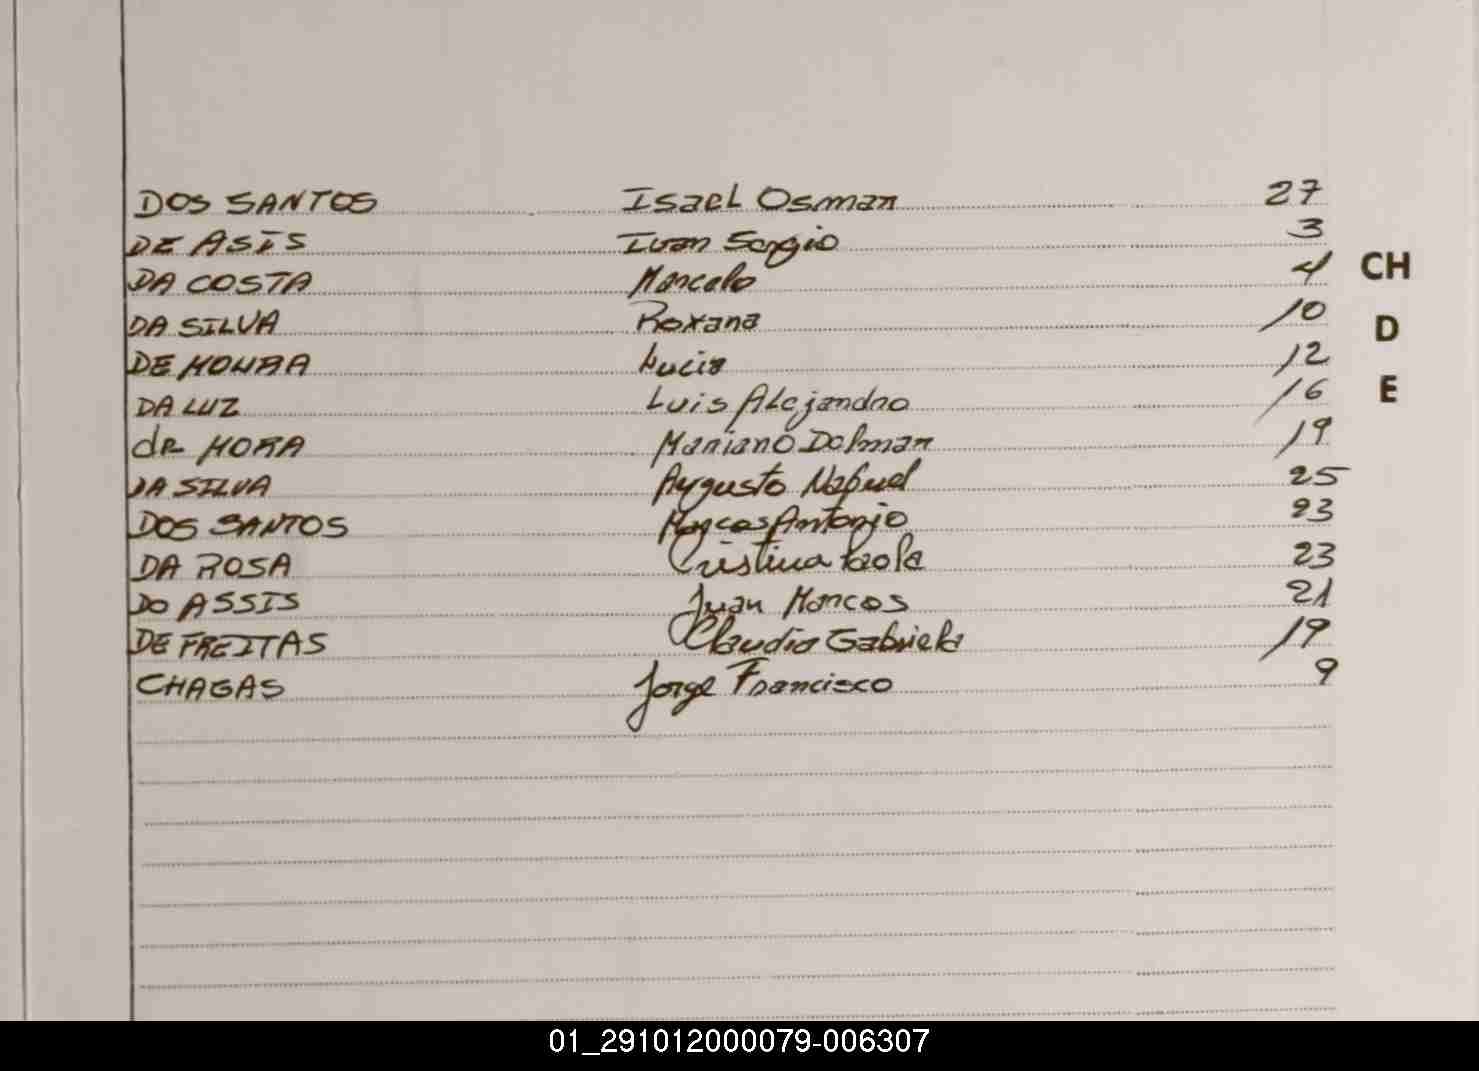 DOS SANTOS Isael Osman 27
DE ASIS Ivan Sergio 3
DA COSTA Marcelo 4
DA SILVA Roxana 10
DE MOURA Lucia 12
DA LUZ Luis Alejandro 16
de MORA Mariano Dolman 19
DA SILVA Augusto Nahuel 25
DOS SANTOS Marcos Antonio 23
DA ROSA Cristina Paola 23
DO ASSIS Juan Marcos 21
DE FREITAS Claudia Gabriela 19
CHAGAS Jorge Francisco 9
CH
D
E
01_291012000079-006307